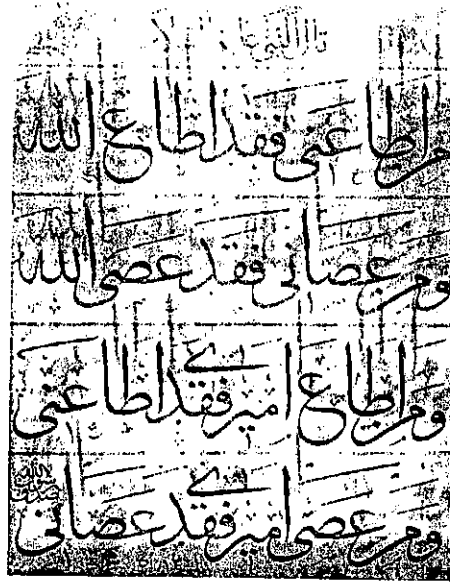 قال النبي
من اطاعنى فقد اطاع الله
ومن عصانى فقد عصى الله
ومن اطاع اميرى فقد اطاعنى
ومن عصى اميرى فقد عصانى